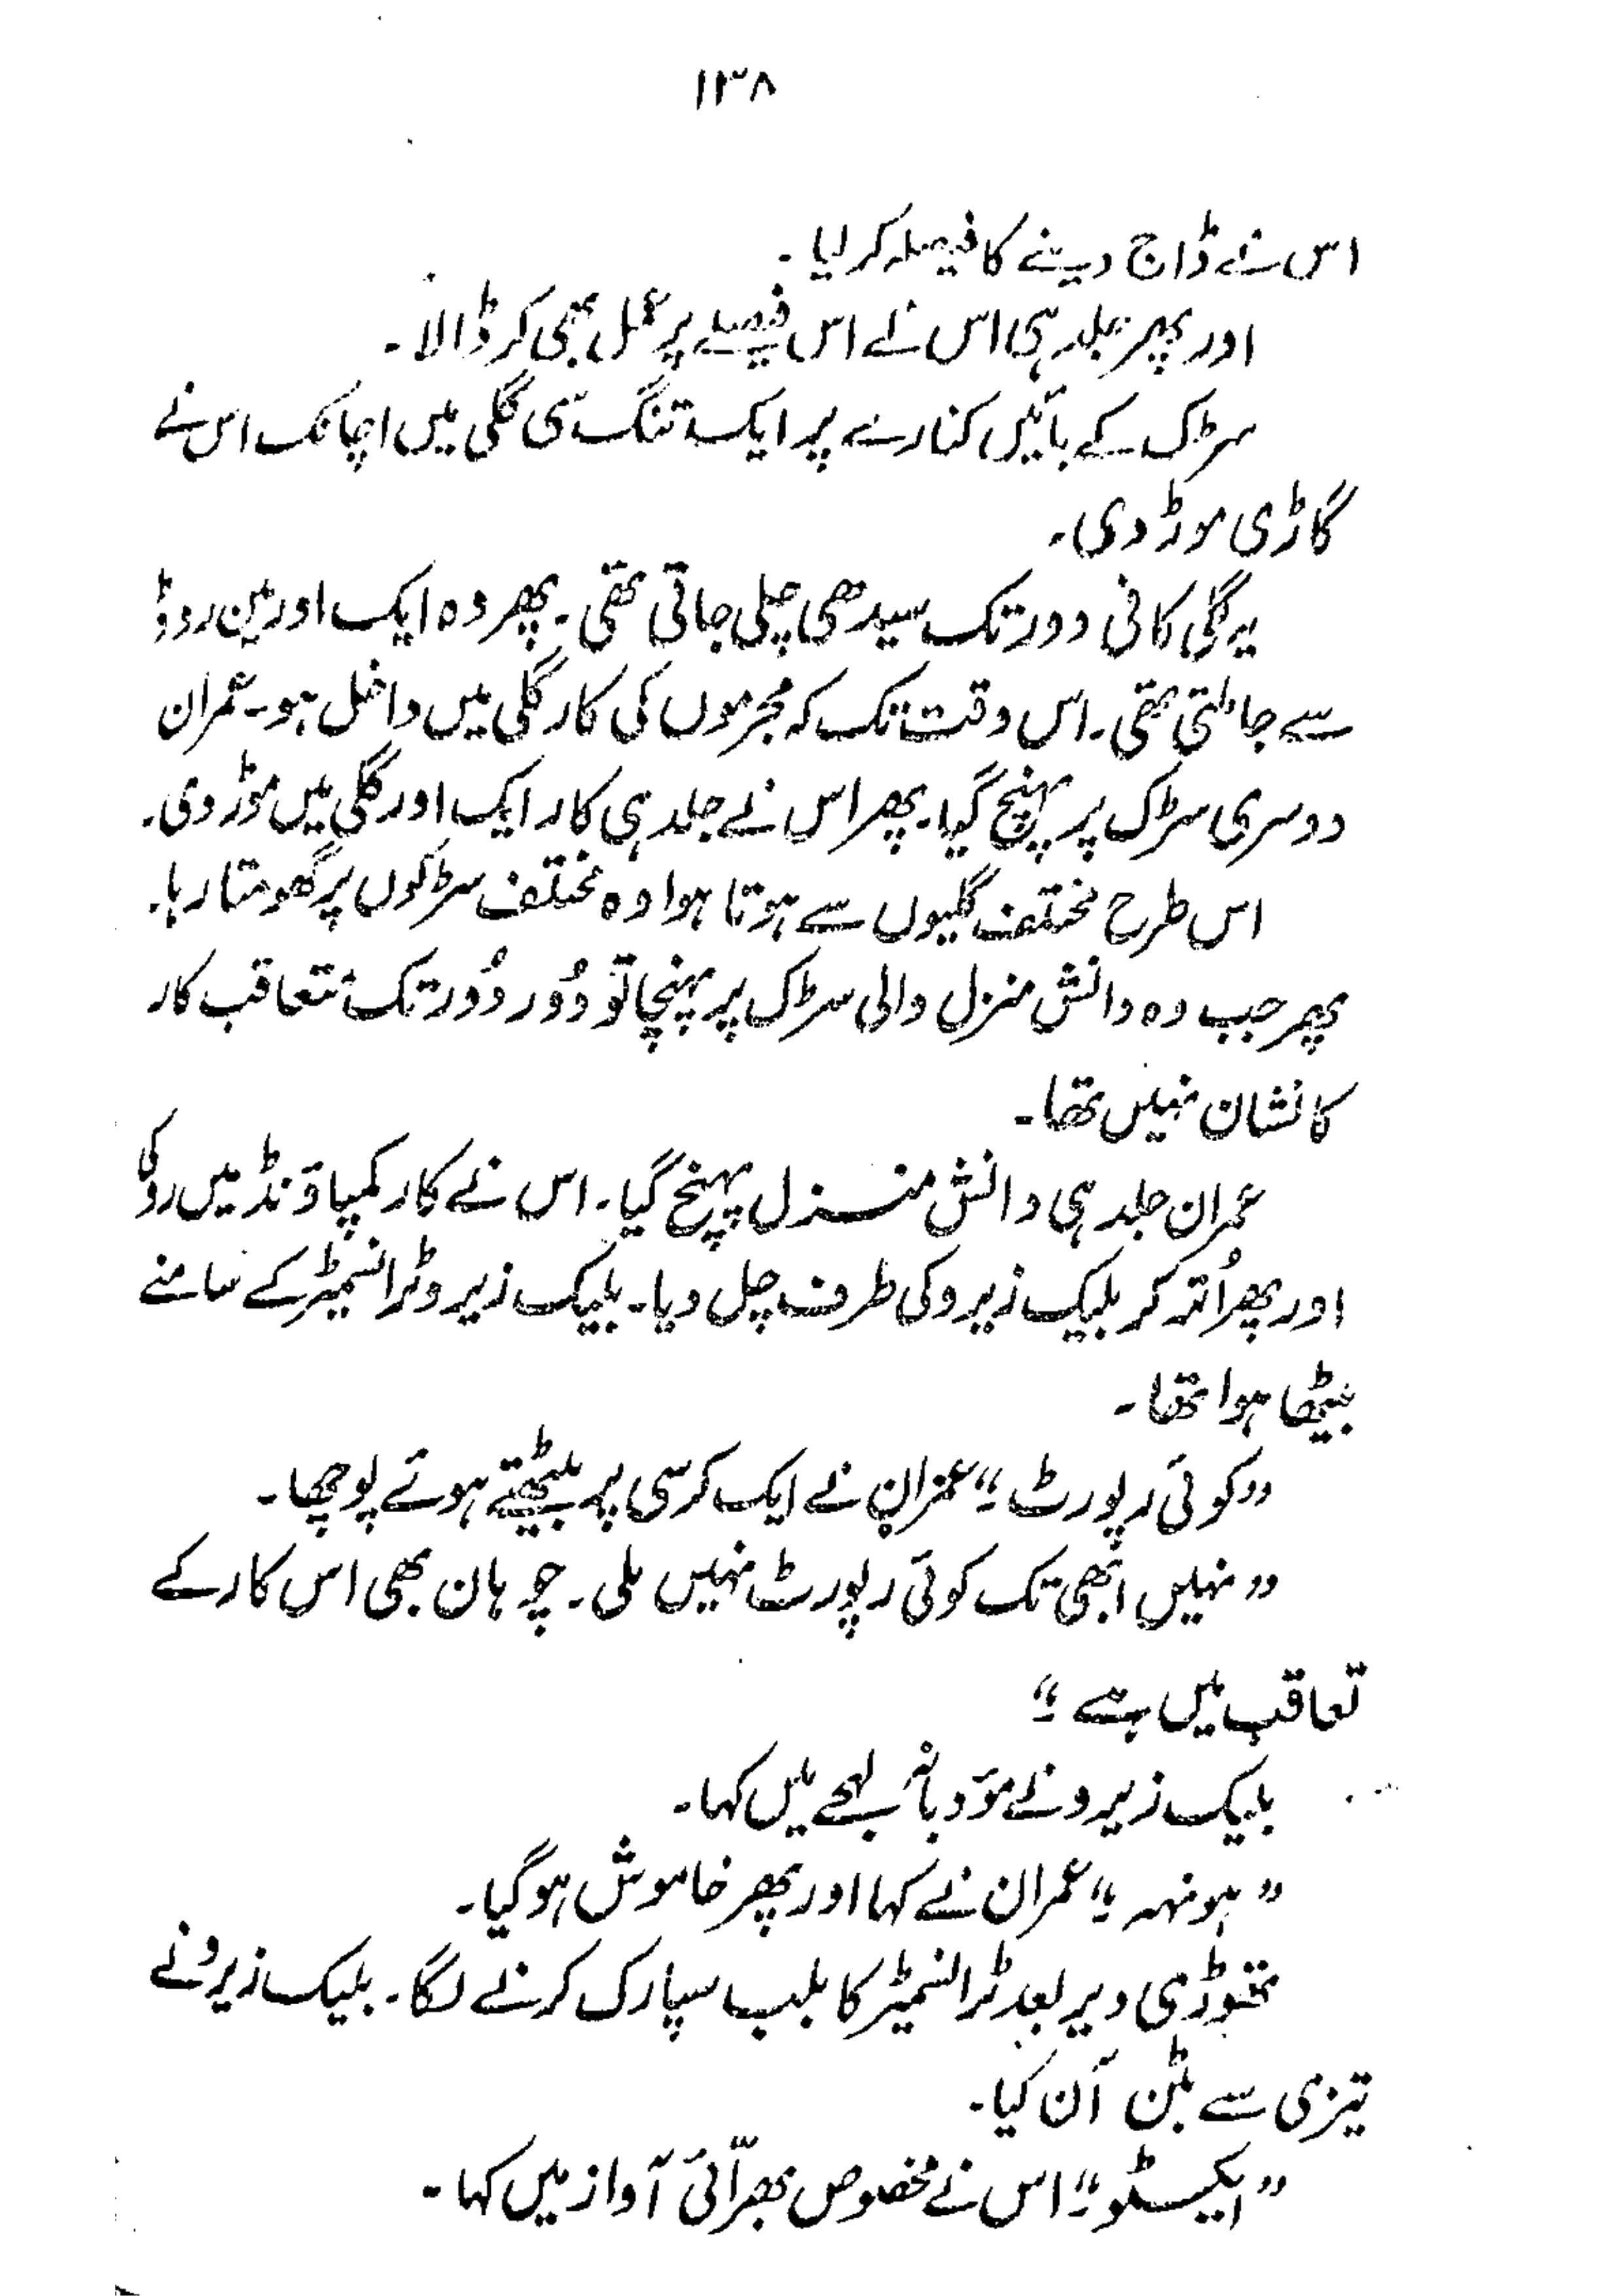 ۱۳۸
اس نے ڈاج دینے کا فیصلہ کر لیا۔
اور پھر جلد ہی اس نے اس فیصلے پر عمل بھی کر ڈالا۔
سڑک کے بائیں کنارے پر ایک تنگ سی گلی میں اچانک اس نے
گاڑی موڑ دی۔
یہ گلی کافی دور تک سیدھی چلی جاتی تھی۔ پھر وہ ایک اور مین روڈ
سے جا ملتی تھی۔ اس وقت تک کہ مجرموں کی کار گلی میں داخل ہو۔ عمران
دوسری سڑک پر پہنچ گیا۔ پھر اس نے جلد ہی کار ایک اور گلی میں موڑ دی۔
اس طرح مختلف گلیوں سے ہوتا ہوا وہ مختلف سڑکوں پر گھومتا رہا۔
پھر جب وہ دانش منزل والی سڑک پر پہنچا تو دُور دُور تک متعاقب کار
کا نشان نہیں تھا۔
عمران جلد ہی دانش منزل پہنچ گیا۔ اس نے کار کمپاؤنڈ میں روکی
اور پھر اُتر کر بلیک زیرو کی طرف چل دیا۔ بلیک زیرو ٹرانسمیٹر کے سامنے
بیٹھا ہوا تھا۔
”کوئی رپورٹ۔“ عمران نے ایک کرسی پر بیٹھتے ہوئے پوچھا۔
”نہیں ابھی تک کوئی رپورٹ نہیں ملی۔ چوہان بھی اس کار کے
تعاقب میں ہے۔“
بلیک زیرو نے مؤدبانہ لہجے میں کہا۔
”ہونہہ۔“ عمران نے کہا اور پھر خاموش ہو گیا۔
تھوڑی دیر بعد ٹرانسمیٹر کا بلب سپارک کرنے لگا۔ بلیک زیرو نے
تیزی سے بٹن آن کیا۔
”ایکسٹو۔“ اس نے مخصوص بھرّائی آواز میں کہا۔